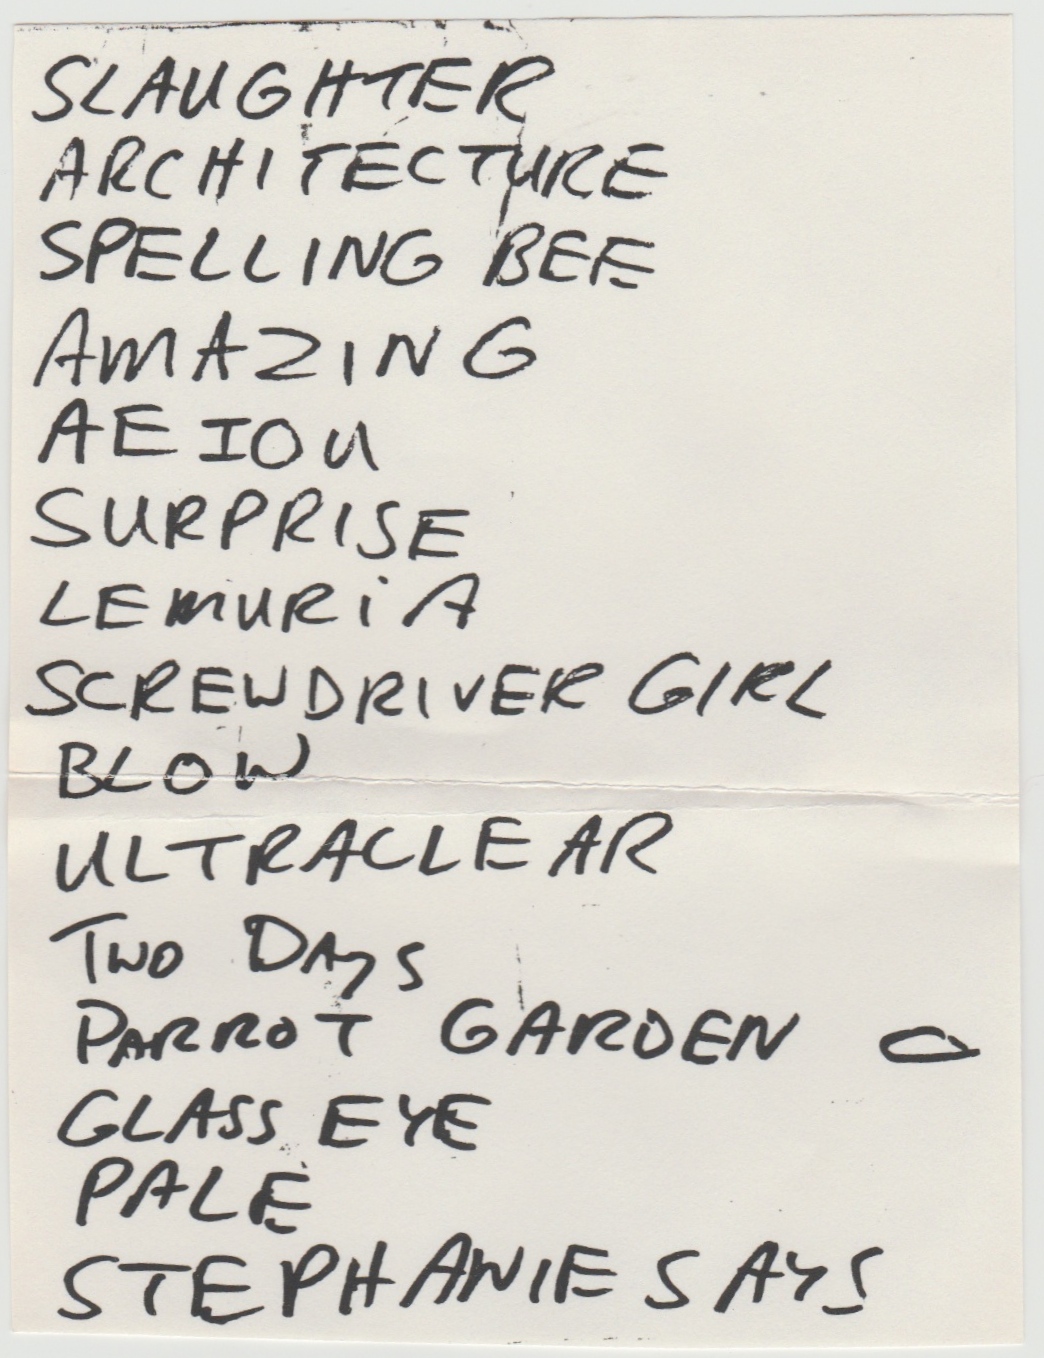 SLAUGHTER
ARCHITECTURE
SPELLING BEE
AMAZING
AEIOU
SURPRISE
LEMURiA
SCREWDRIVER GIRL
BLOW
ULTRACLEAR
TWO DAYS
PARROT GARDEN
GLASS EYE
PALE
STEPHANIE SAYS